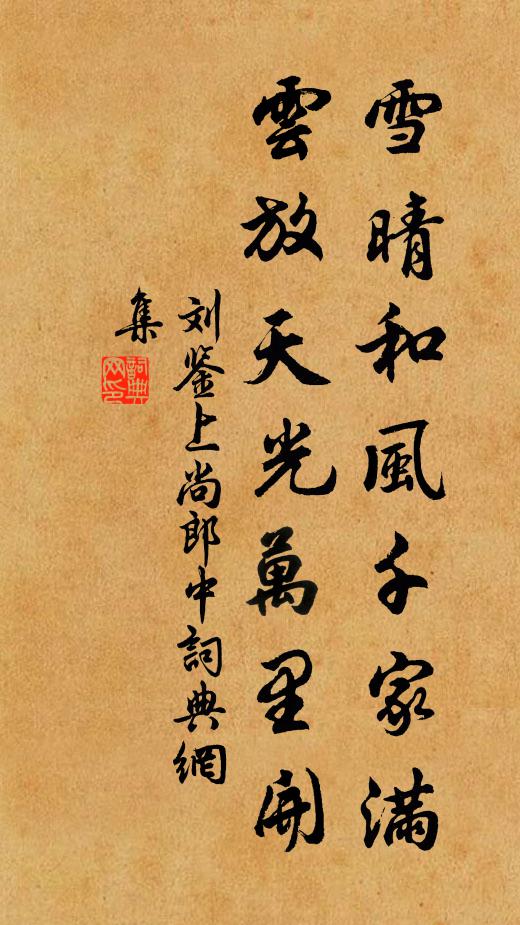 雪晴和風千家滿
雲放天光萬里開
刘鉴上尚郎中詞典網
集
詞典网印